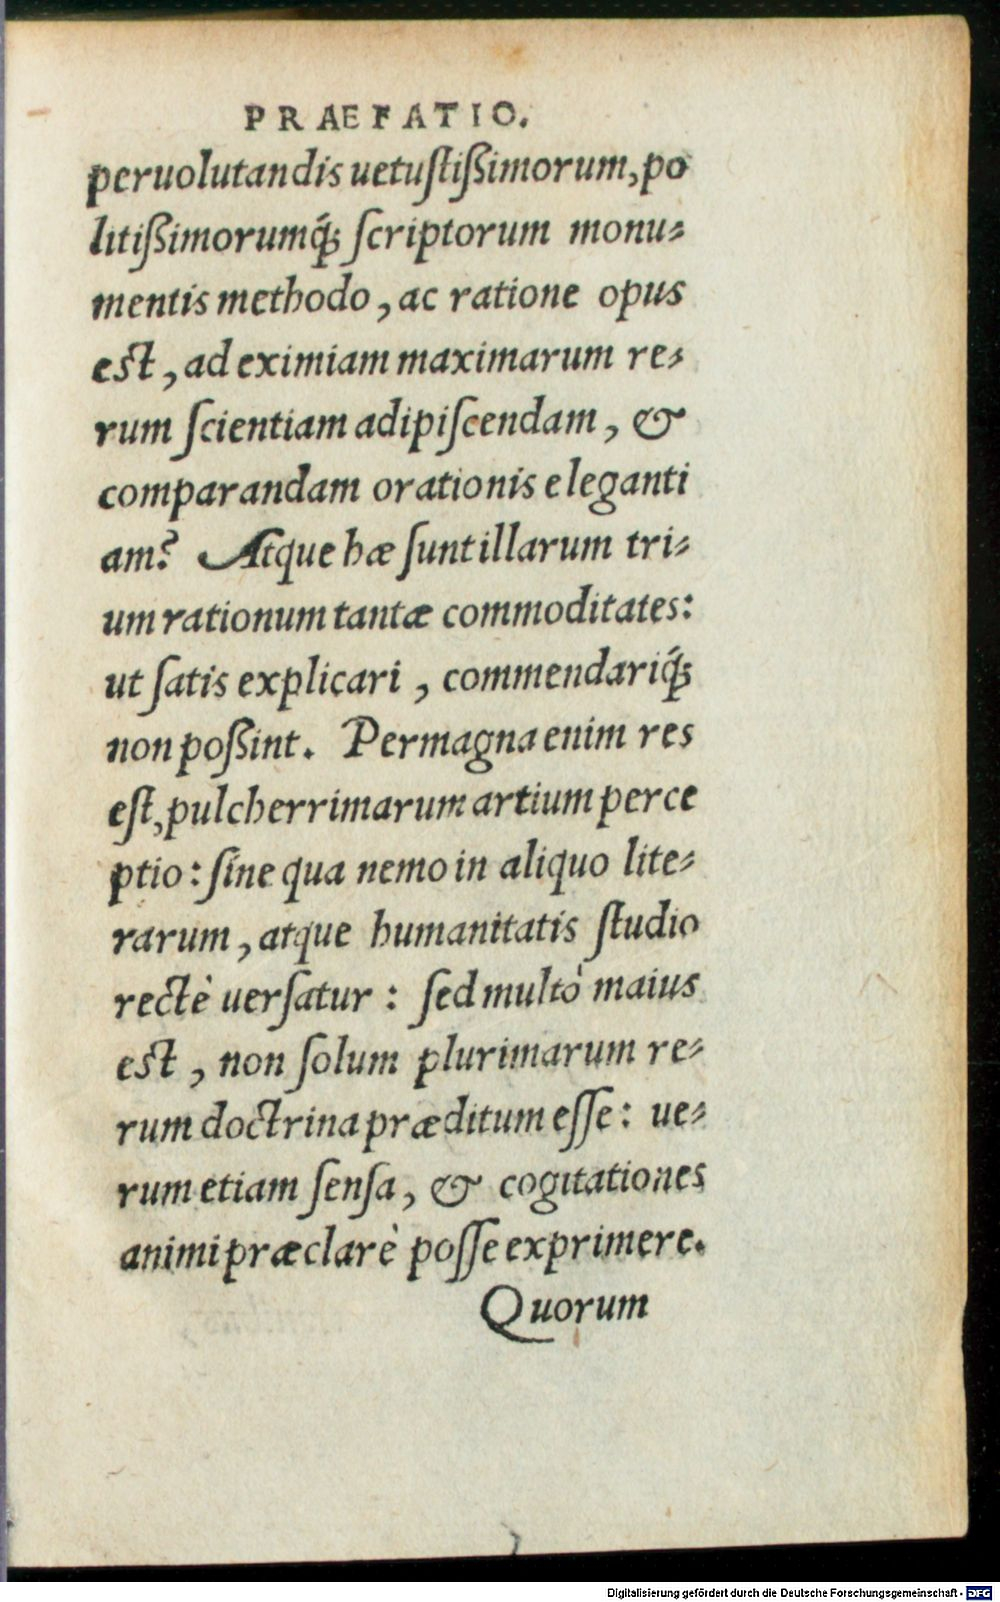 PRAEFATIO.
peruolutandis uetuſtißimorum, po
litißimorumq́; ſcriptorum monu-
mentis methodo, ac ratione opus
est, ad eximiam maximarum re-
rum ſcientiam adipiſcendam, &
comparandam orationis eleganti
am? Atque hæ ſunt illarum tri-
um rationum tantæ commoditates:
ut ſatis explicari, commendariq́;
non poßint. Permagna enim res
eſt, pulcherrimarum artium perce
ptio: ſine qua nemo in aliquo lite-
rarum, atque humanitatis ſtudio
rectè uerſatur: ſed multò maius
est, non ſolum plurimarum re-
rum doctrina præditum eſſe: ue-
rum etiam ſenſa, & cogitationes
animi præclarè poſſe exprimere.
Quorum
Digitalisierung gefördert durch die Deutsche Forschungsgemeinschaft - DFG